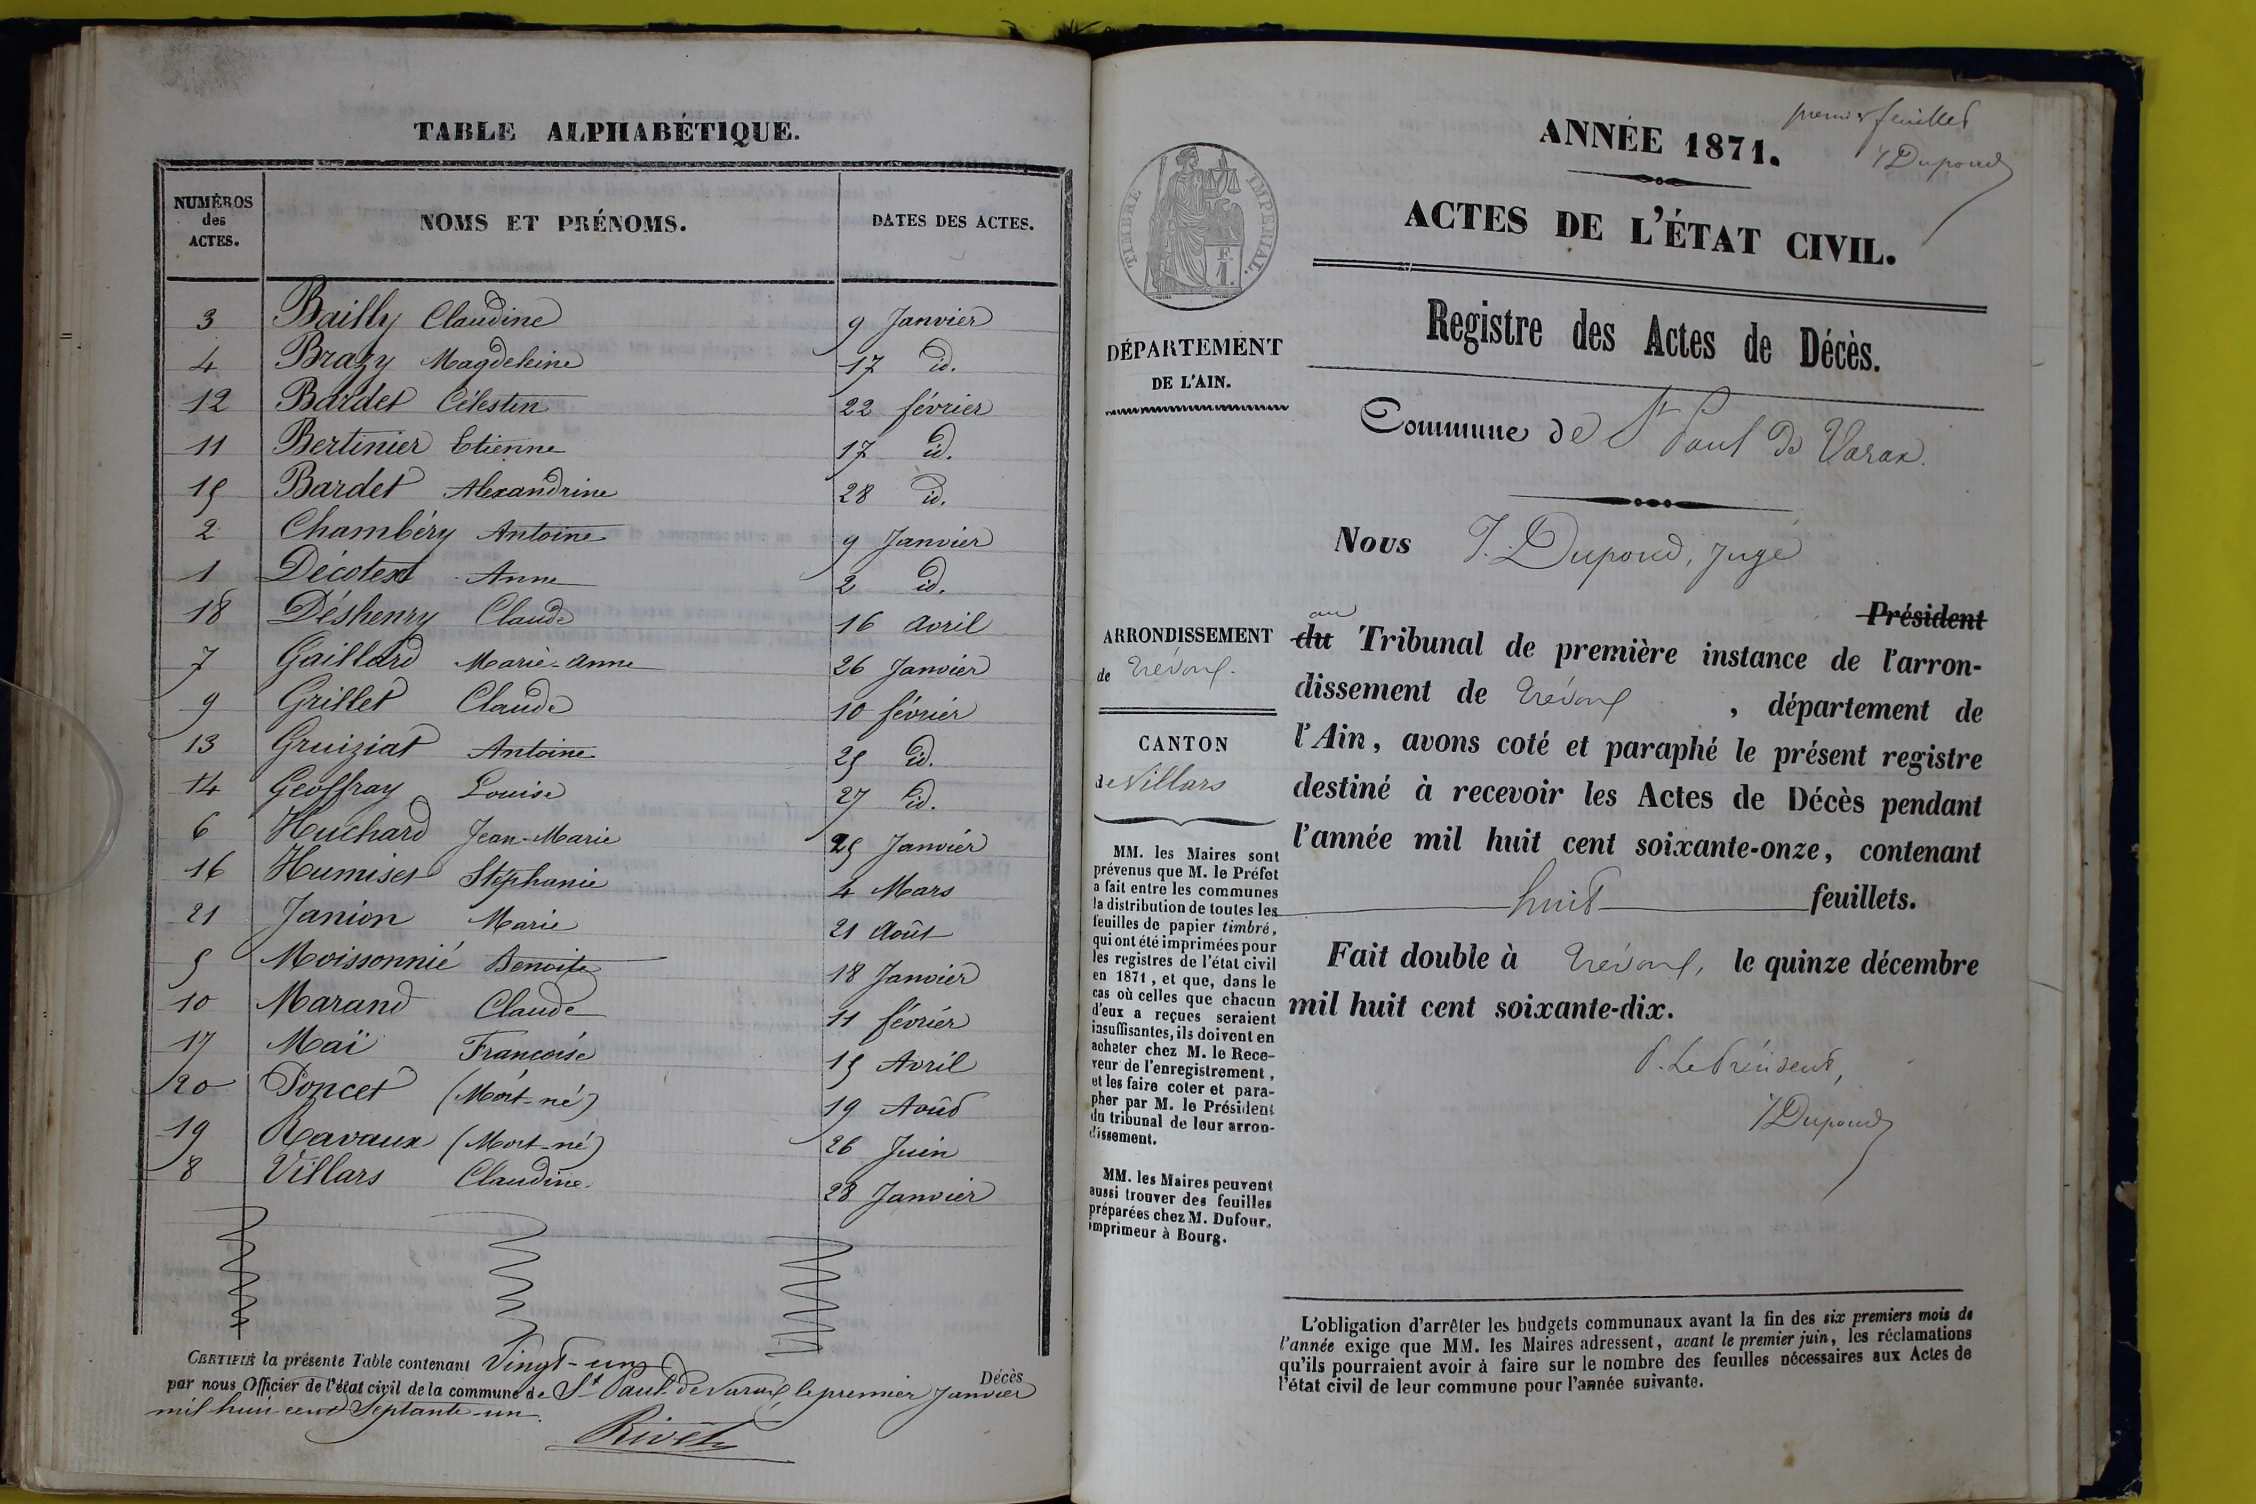 TABLE ALPHABÉTIQUE.
NUMÉROS des ACTES. NOMS ET PRÉNOMS. DATES DES ACTES.
3 Bailly Claudine 9 Janvier
4 Brazy Magdeleine 17 id.
12 Bardet Célestin 22 février
11 Bertinier Etienne 17 id.
15 Bardet Alexandrine 28 id.
2 Chambéry Antoine 9 Janvier
1 Décotest Anne 2 id.
18 Déshenry Claude 16 avril
7 Gaillard Marie-anne 26 Janvier
9 Grillet Claude 10 février
13 Gruiziat Antoine 25 id.
14 Geoffray Louise 27 id.
6 Huchard Jean-Marie 25 Janvier
16 Humiset Stéphanie 4 Mars
21 Janion Marie 21 Août
5 Moissonnié Benoite 18 Janvier
10 Marand Claude 11 février
17 Maï Françoise 15 Avril
20 Poncet (Mort-né) 19 Août
19 Ravaux (Mort-né) 26 Juin
8 Villars Claudine 28 Janvier
CERTIFIÉ la présente Table contenant Vingt-un Décès
par nous Officier de l'état civil de la commune de St Paul de Varax le premier Janvier
mil huit cent Septante-un.
Rivet
premier feuillet
J Dupoud
ANNÉE 1871.
ACTES DE L'ÉTAT CIVIL.
Registre des Actes de Décès.
Commune de St Paul de Varax.
TIMBRE IMPERIAL.
F.
1.
DÉPARTEMENT
DE L'AIN.
ARRONDISSEMENT
de Trévoux.
CANTON
de Villars
MM. les Maires sont
prévenus que M. le Préfet
a fait entre les communes
la distribution de toutes les
feuilles de papier timbré,
qui ont été imprimées pour
les registres de l'état civil
en 1871, et que, dans le
cas où celles que chacun
d'eux a reçues seraient
insuffisantes, ils doivent en
acheter chez M. le Rece-
veur de l'enregistrement,
et les faire coter et para-
pher par M. le Président
du tribunal de leur arron-
dissement.
MM. les Maires peuvent
aussi trouver des feuilles
préparées chez M. Dufour,
imprimeur à Bourg.
Nous J. Dupoud, juge
Président
au
du Tribunal de première instance de l'arron-
dissement de Trévoux, département de
l'Ain, avons coté et paraphé le présent registre
destiné à recevoir les Actes de Décès pendant
l'année mil huit cent soixante-onze, contenant
huit feuillets.
Fait double à Trévoux, le quinze décembre
mil huit cent soixante-dix.
P. Le Président,
J Dupoud
L'obligation d'arrêter les budgets communaux avant la fin des six premiers mois de
l'année exige que MM. les Maires adressent, avant le premier juin, les réclamations
qu'ils pourraient avoir à faire sur le nombre des feuilles nécessaires aux Actes de
l'état civil de leur commune pour l'année suivante.